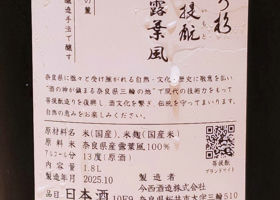 う杉
菩提酛
いもと
露葉風
の麓
醸造手法で醸す
奈良県に脈々と受け継がれる自然・文化・歴史に敬意を払い
"酒の神が鎮まる 奈良県三輪の地"で現代の技術力をもって
菩提酛造りを復興し、酒文化を繋ぎ、伝統を守ってまいります。
自然の恵みをお楽しみください。
原材料名 米(国産)、米麹(国産米)
原料米 奈良県産露葉風100%
アルコール分 13度(原酒)
内容量 1.8L
製造年月 2025.10
品目 日本酒
製造者
今西酒造株式会社
奈良県桜井市大字三輪510
菩提酛
ブランドサイト